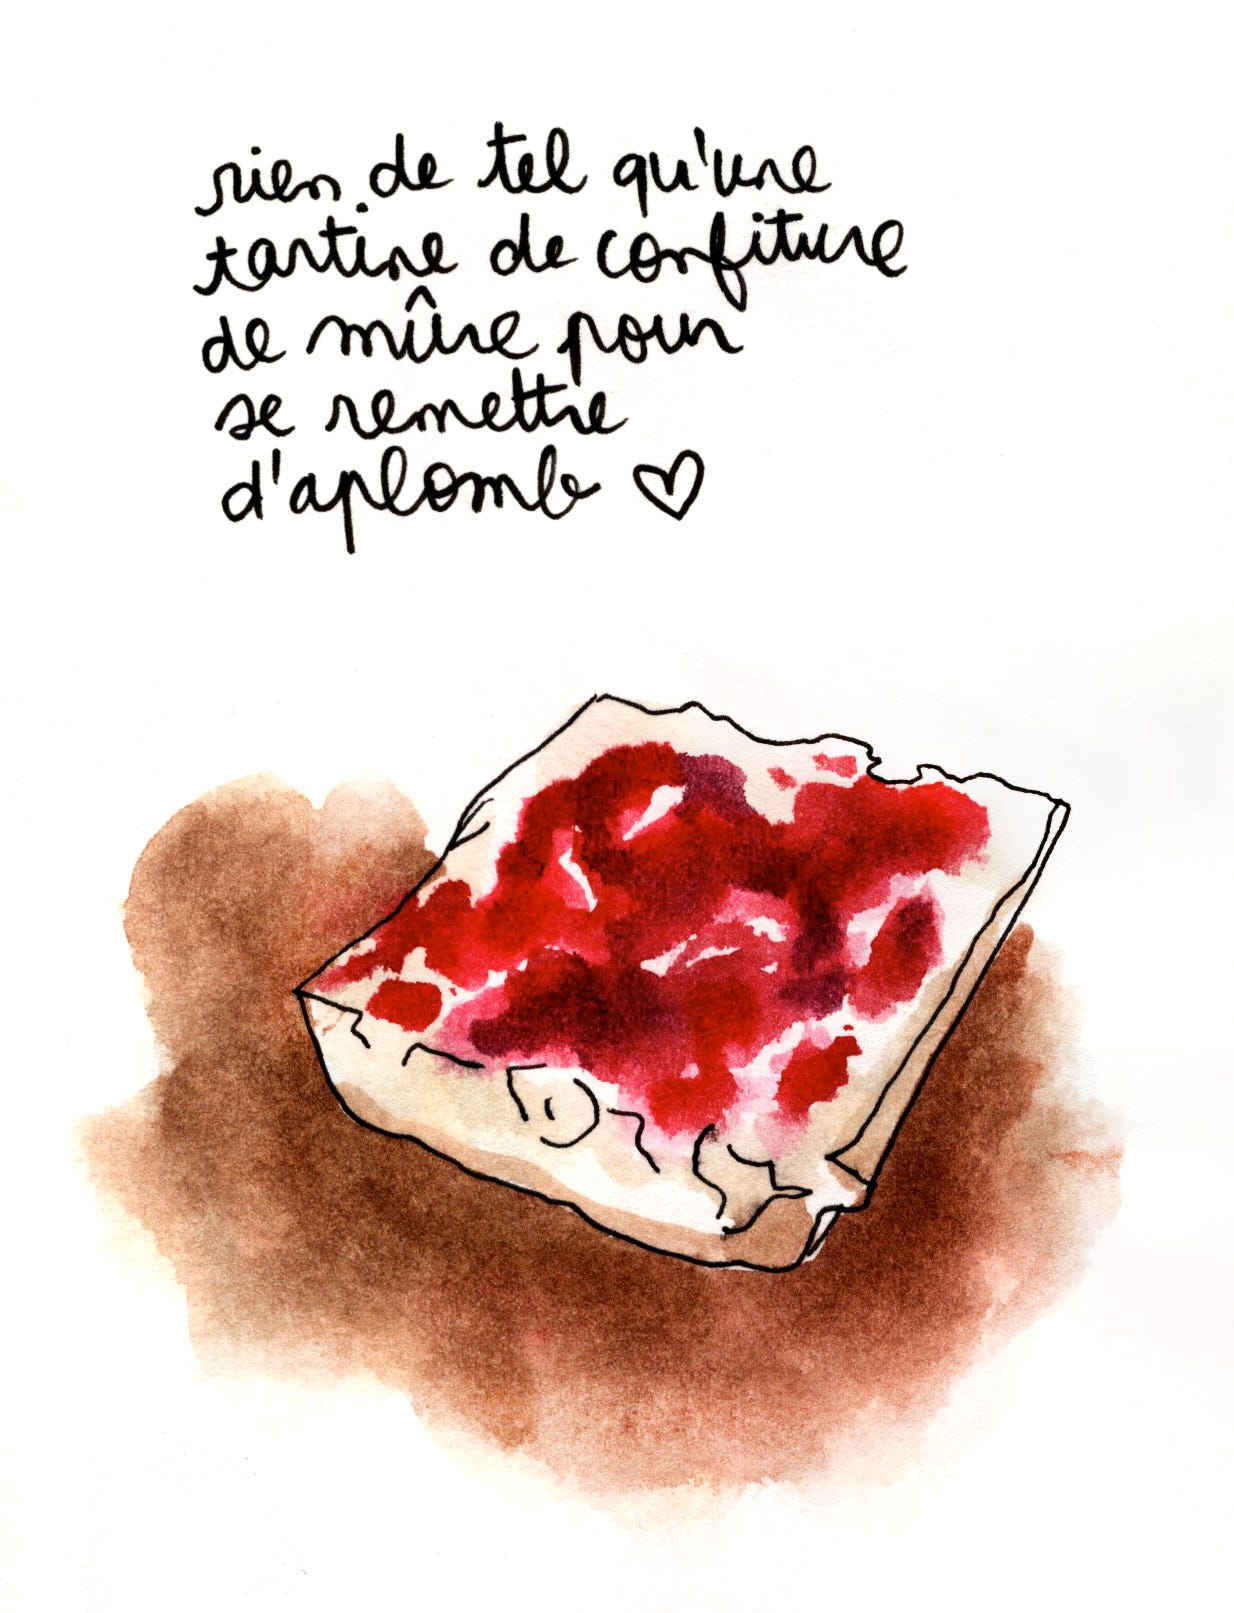 rien de tel qu'une
tartine de confiture
de mûre pour
se remettre
d'aplomb ♡